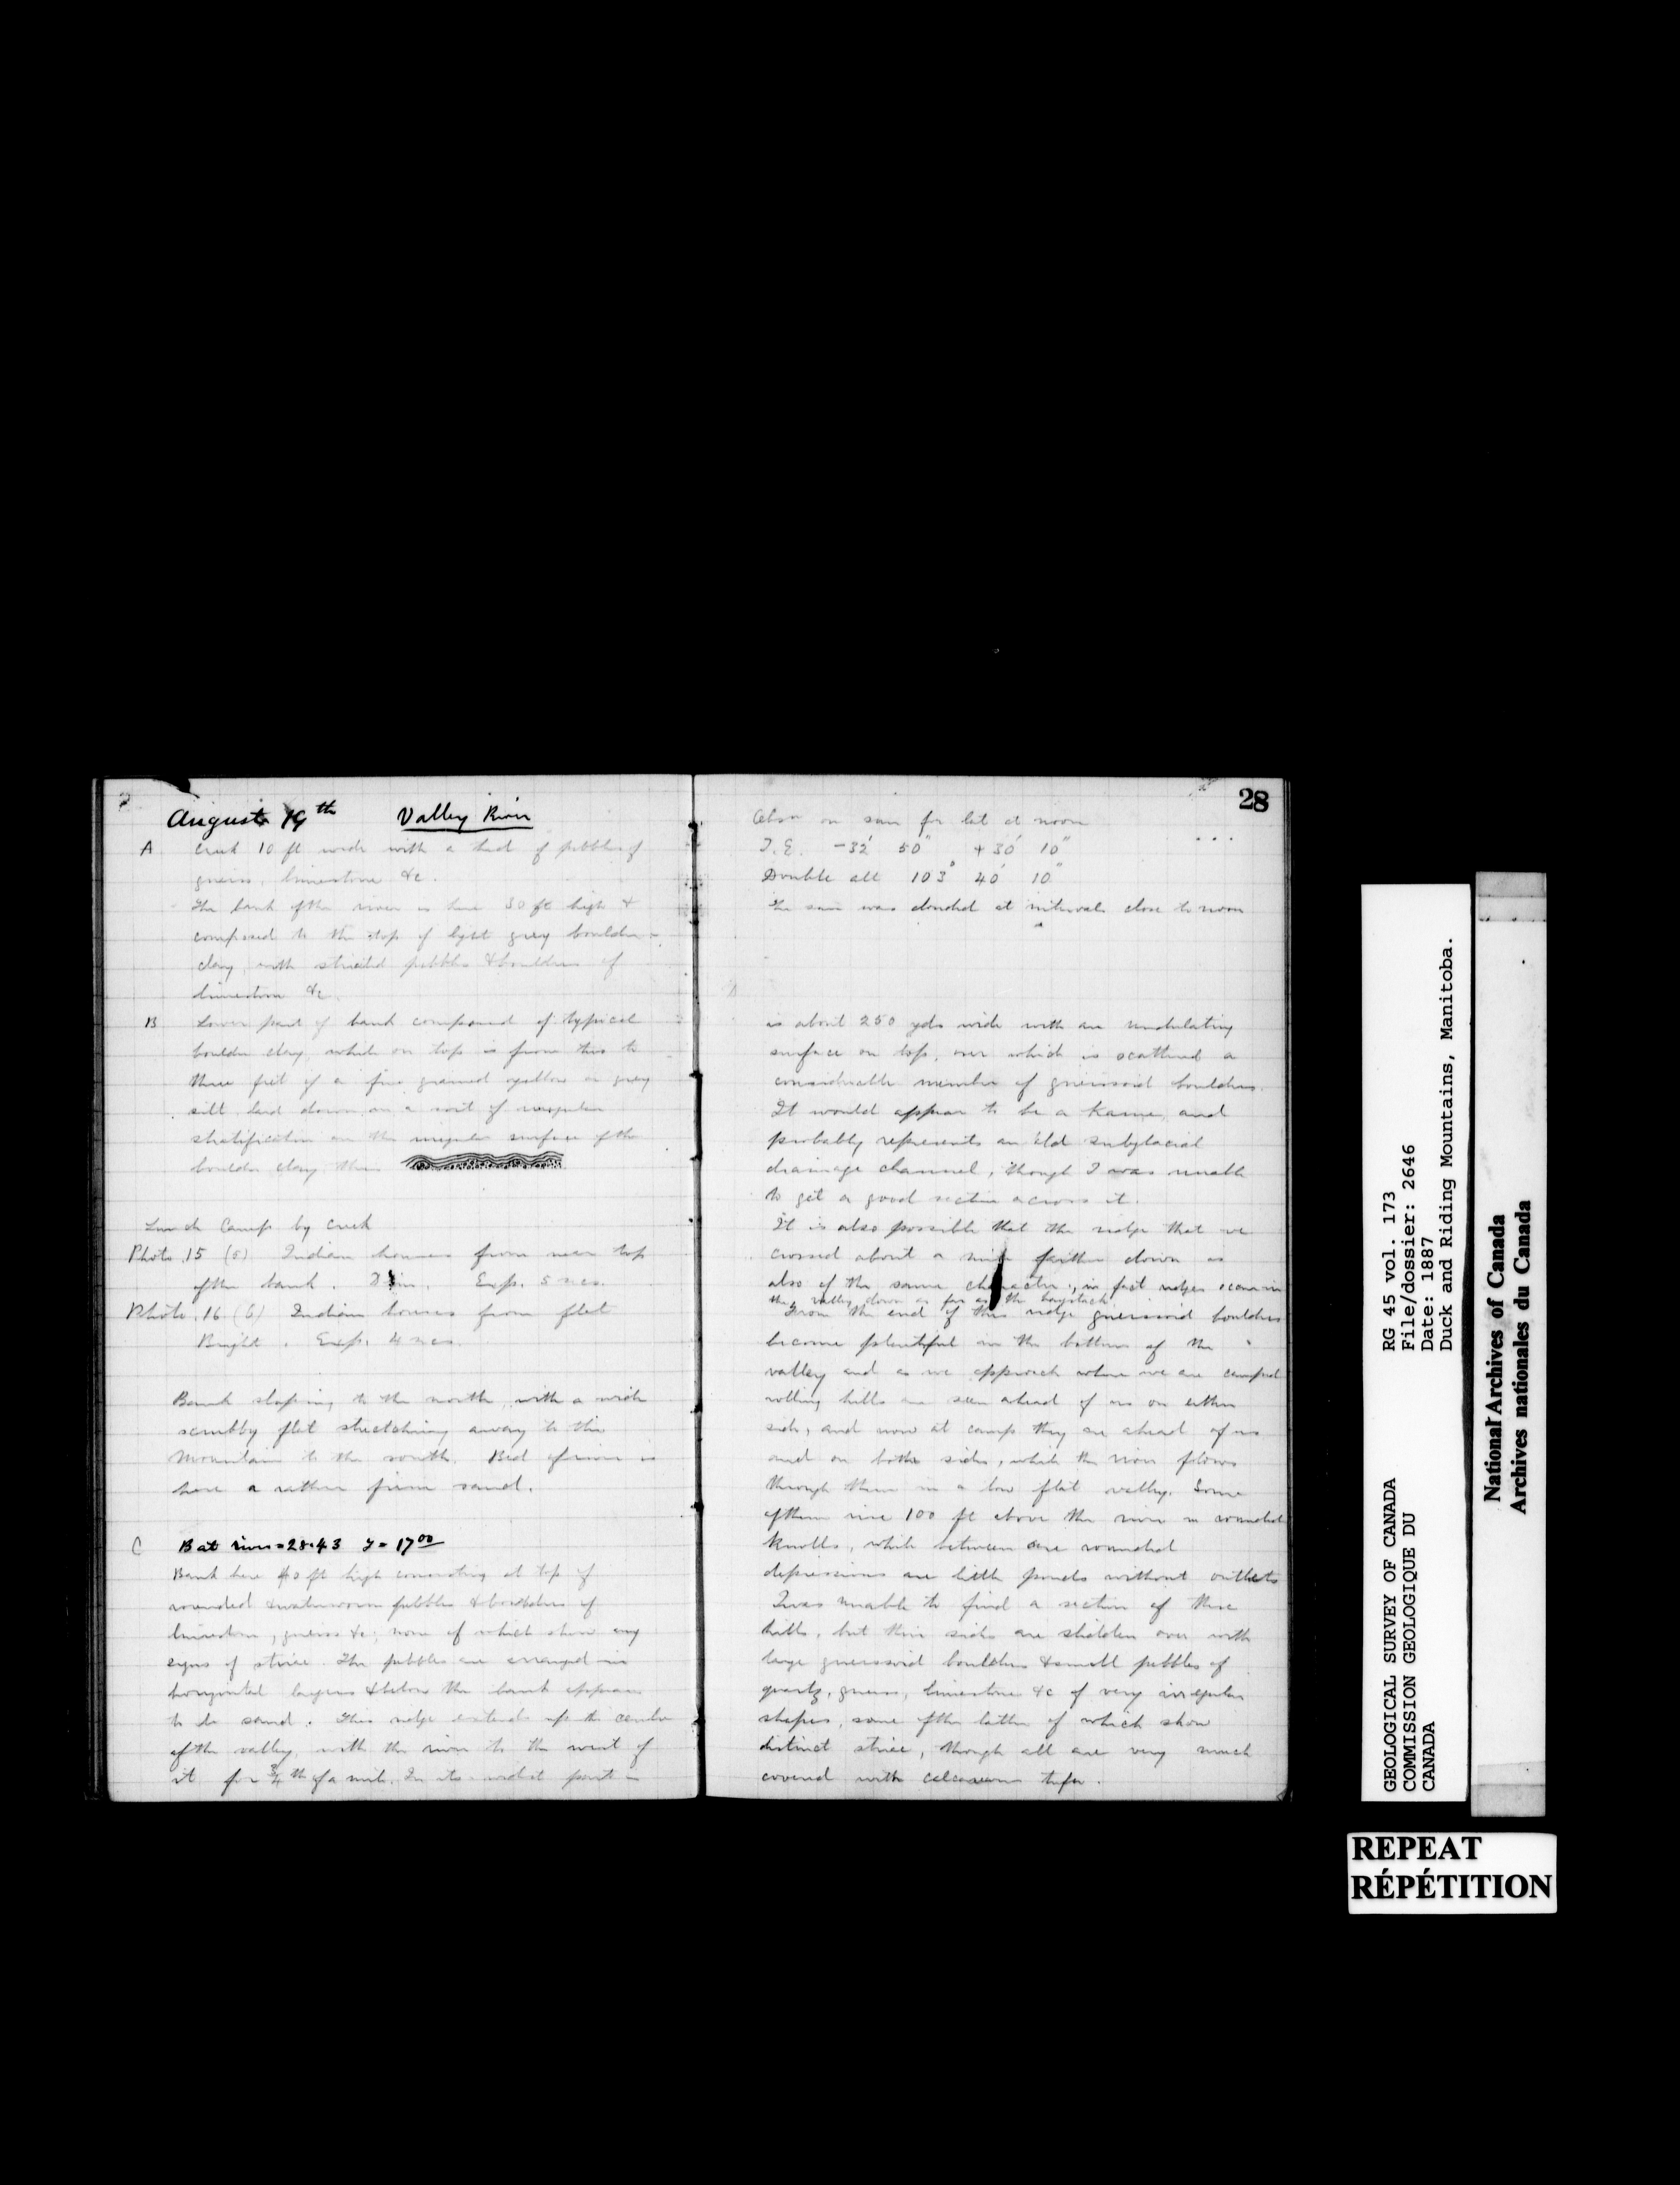 August 19th Valley River
A Creek 10 ft wide with a bed of pebbles of
gneiss, limestone &c.
The bank of the river is here 30 ft high &
composed to the top of light grey boulder-
clay, with striated pebbles & boulders of
limestone &c.
B Lower part of bank composed of typical
boulder clay, while on top is from two to
three feet of a fine grained yellow or grey
silt laid down on a sort of irregular
stratification on the irregular surface of the
boulder clay thus
Lunch Camp by creek
Photo 15 (5) Indian houses from near top
of the bank. Dim. Exp. 5 secs.
Photo 16 (6) Indian houses from flat
Bright. Exp. 4 secs.
Bank sloping to the north, with a wide
scrubby flat stretching away to the
Mountain to the south. Bed of river is
here a rather firm sand.
C B at river = 28.43 T = 17 00
Bank here 40 ft high consisting at top of
rounded & waterworn pebbles & boulders of
limestone, gneiss &c, none of which show any
signs of striae. The pebbles are arranged in
horizontal layers & below the bank appears
to be sand. This ridge extends up the centre
of the valley, with the river to the west of
it for 3/4 th of a mile. In its widest part it
28
Obsn on sun for lat at noon
I.E. -32' 50" +30' 10"
Double alt 103° 40' 10"
The sun was clouded at intervals close to noon
is about 250 yds wide with an undulating
surface on top, over which is scattered a
considerable number of gneissoid boulders.
It would appear to be a Kame, and
probably represents an old subglacial
drainage channel, though I was unable
to get a good section across it.
It is also possible that the ridge that we
crossed about a mile farther down is
also of the same character, in fact ridges occur in
the valley down as far as the haystack
From the end of this ridge gneissoid boulders
become plentiful in the bottom of the
valley and as we approach where we are camped
rolling hills are seen ahead of us on either
side, and now at camp they are ahead of us
and on both sides, while the river flows
through them in a low flat valley. Some
of them rise 100 ft above the river in rounded
knolls, while between are rounded
depressions are little ponds without outlets
I was unable to find a section of these
hills, but their sides are strewn over with
large gneissoid boulders & small pebbles of
quartz, gneiss, limestone &c of very irregular
shapes, some of the latter of which show
distinct striae, though all are very much
covered with calcareous tufa.
GEOLOGICAL SURVEY OF CANADA
COMMISSION GEOLOGIQUE DU
CANADA
RG 45 vol. 173
File/dossier: 2646
Date: 1887
Duck and Riding Mountains, Manitoba.
National Archives of Canada
Archives nationales du Canada
REPEAT
RÉPÉTITION